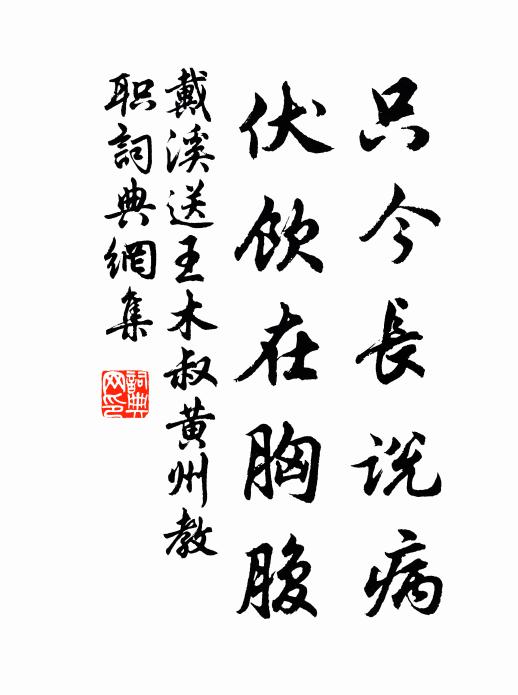 只今長说病
伏飲在胸腹
戴溪送王木叔黄州教
职詞典網集
詞典
网印